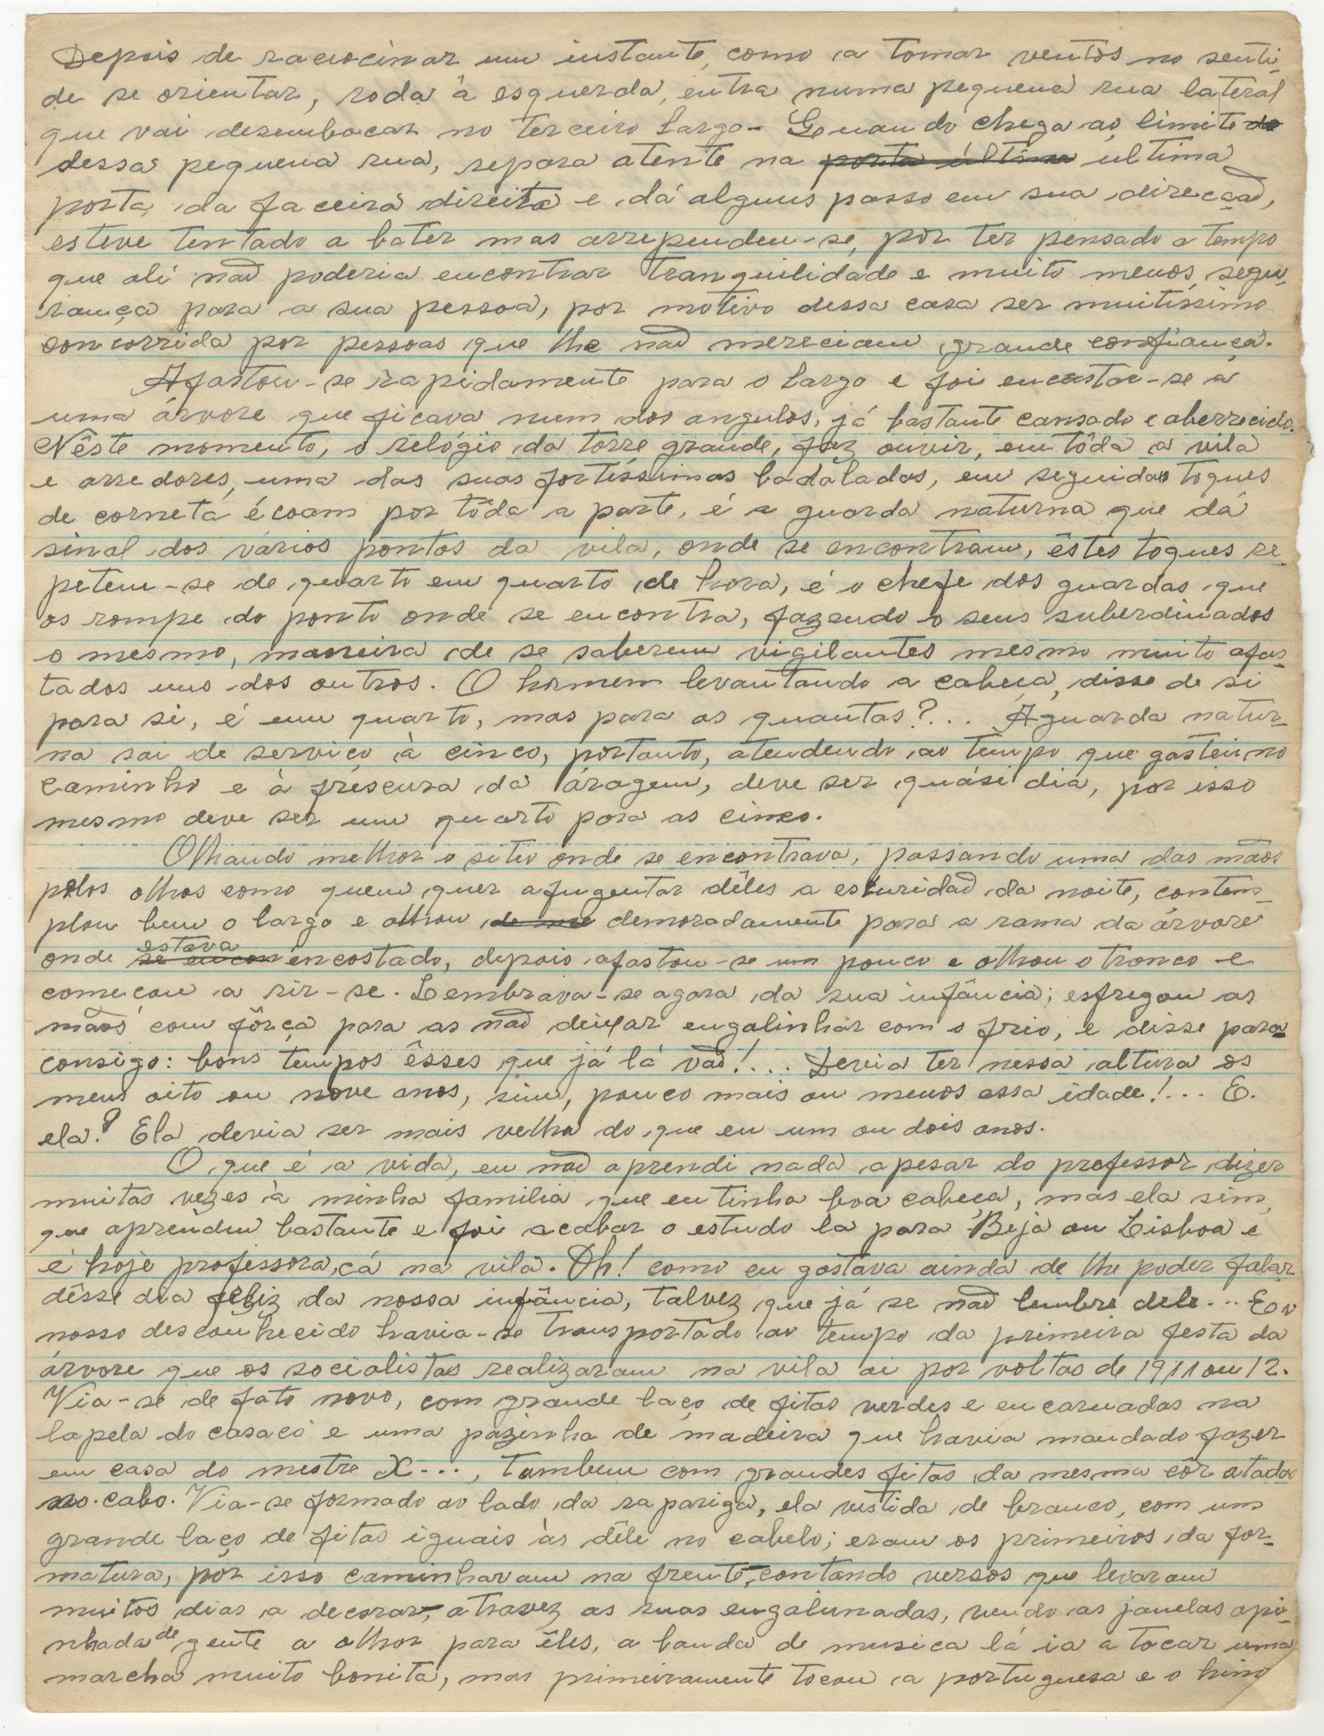 Depois de raciocinar um instante, como a tomar ventos no senti-
de se orientar, roda à esquerda, entra numa pequena rua lateral
que vai desembocar no terceiro largo- Gouando chega ao limite do
dessa pequena rua, repara atente na porta última ultima
porta da faceira direita e dá alguns passo em sua direcção,
esteve tentado a bater mas arrependeu-se, por ter pensado a tempo
que ali não poderia encontrar tranquilidade e muito menos, segu-
rança para a sua pessoa, por motivo dessa casa ser muitissimo
concorrida por pessoas que lhe não mereciam grande confiança.
Afastou-se rapidamente para o largo e foi encostar-se a
uma árvore que ficava num dos angulos, já bastante cansado e aborrecido.
Nêste momento, o relógio da torre grande, faz ouvir, em tôda a vila
e arredores, uma das suas fortíssimas badaladas, em seguidas toques
de corneta écoam por tôda a parte, é a guarda naturna que dá
sinal dos vários pontos da vila, onde se encontram, êstes toques re-
petem-se de quarto em quarto de hora, é o chefe dos guardas que
os rompe do ponto onde se encontra, fazendo o seus suberdinados
o mesmo, maneira de se saberem vigilantes mesmo muito afas-
tados uns dos outros. O homem levantando a cabeca, disse de si
para si, é um quarto, mas para as quantas?... A guarda natur-
na sai de serviço à cinco, portanto, atendendo ao tempo que gastei no
caminho e à frescura da áragem, deve ser quási dia, por isso
mesmo deve ser um quarto para as cinco.
Olhando melhor o sitio onde se encontrava, passando uma das mãos
pelos olhos como quem quer afugentar dêles a escuridão da noite, contem-
plou bem o largo e olhou de no demoradamente para a rama da árvore
onde se encon estava encostado, depois afastou-se um pouco e olhou o tronco e
começou a rir-se. Lembrava-se agora da sua infância; esfregou as
mãos com fôrça para as não deixar engalinhar com o frio, e disse para
consigo: bons tempos êsses que já lá vão!... Devia ter nessa altura os
meus oito ou nove anos, sim, pouco mais ou menos essa idade!... E.
ela? Ela devia ser mais velha do que eu um ou dois anos.
O que é a vida, eu não aprendi nada apesar do professor dizer
muitas vezes à minha familia que eu tinha boa cabeça, mas ela sim,
que aprendeu bastante e foi acabar o estudo lá para Beja ou Lisboa e
é hoje professora, cá na vila. Oh! como eu gostava ainda de lhe poder falar
dêsse dia feliz da nossa infância, talvez que já se não lembre dele... E o
nosso desconhecido havia-se transportado ao tempo da primeira festa da
árvore que os socialistas realizaram na vila ai por voltas de 1911 ou 12.
Via-se de fato novo, com grande laço de fitas verdes e encarnadas na
lapela do casaco e uma pázinha de madeira que havia mandado fazer
em casa do mestre X..., tambem com grandes fitas da mesma côr atadas
no cabo. Via-se formado ao lado da rapariga, ela vestida de branco, com um
grande laço de fitas iguais às dêle no cabelo; eram os primeiros da for-
matura, por isso caminhavam na frente, contando versos que levaram
muitos dias a decorar, atravez as ruas engalunadas, vendo as janelas api-
nhada de gente a olhar para êles, a banda de musica lá ia a tocar uma
marcha muito bonita, mas primeiramente tocou a portuguesa e o hino